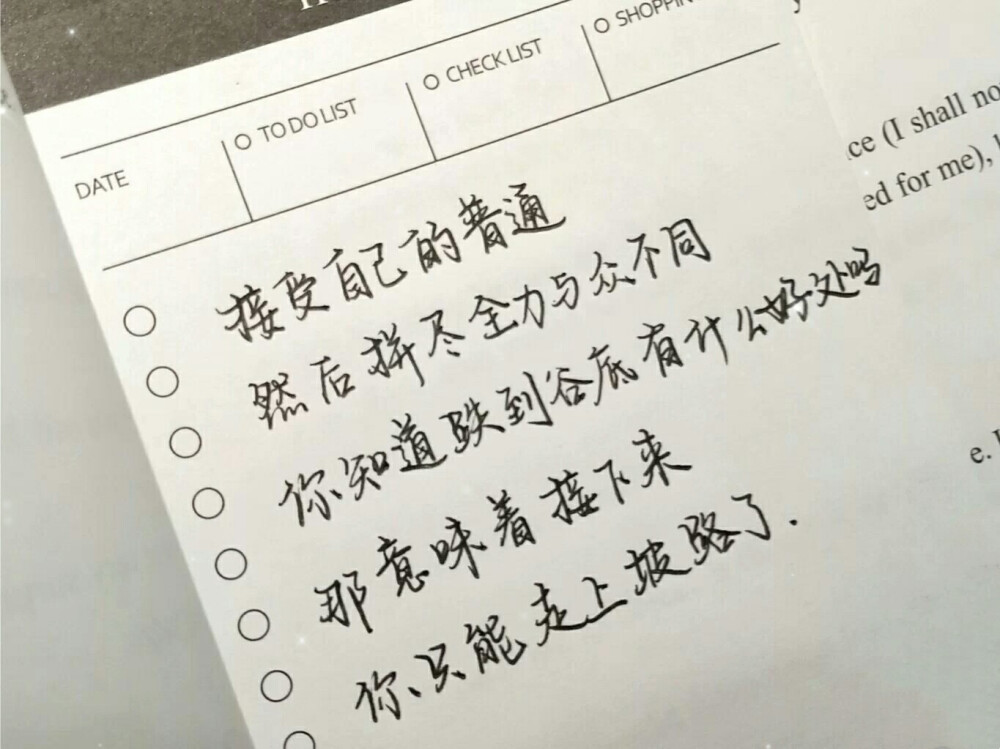 DATE
TO DO LIST
CHECK LIST
接受自己的普通
然后拼尽全力与众不同
你知道跌到谷底有什么好处吗
那意味着接下来
你只能走上坡路了.
ce (I shall no
ed for me),
e.